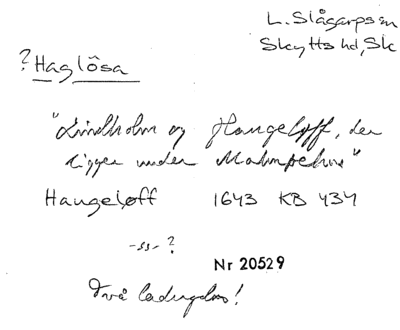 L. Slågarps sn
Skytts hd, Sk
? Haglösa
"Lindholm og Hangeløff, der
ligger under Malmøehus"
Hangeløff 1643 KB 434
-ss- ?
Nr 20529
Två !